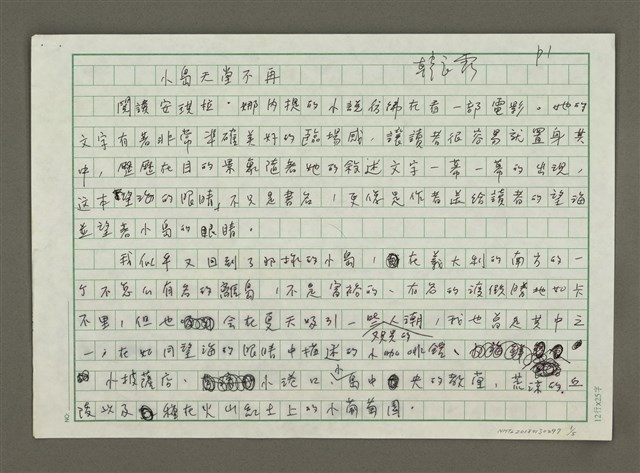 p1
韓良露
小島天堂不再
閱讀安琪拉‧娜內提的小說彷彿在看一部電影。她的
文字有著非常準確美好的臨場感，讓讀者很容易就置身其
中，歷歷在目的景象隨著她的敘述文字一幕一幕的出現，
這本望海的眼睛，不只是書名，更像是作者送給讀者的望海
並望著小島的眼睛。
我似乎又回到了那樣的小島，在義大利的南方的一
個不怎麼有名的離島，不是富裕的、有名的渡假勝地如卡
不里，但也會在夏天吸引一些人潮，我也曾是其中之
一，在如同望海的眼睛中描述的小
小披薩店、小港口、島中央的教堂，荒涼的丘
陵以及種在火山紅土上的小葡萄園。
12行×25字
NO.